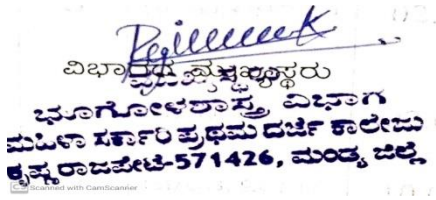 ವಿಭಾಗದ ಮುಖ್ಯಸ್ಥರು
ಭೂಗೋಳಶಾಸ್ತ್ರ ವಿಭಾಗ
ಮಹಿಳಾ ಸರ್ಕಾರಿ ಪ್ರಥಮ ದರ್ಜೆ ಕಾಲೇಜು
ಕೃಷ್ಣರಾಜಪೇಟೆ-571426, ಮಂಡ್ಯ ಜಿಲ್ಲೆ
CS Scanned with CamScanner